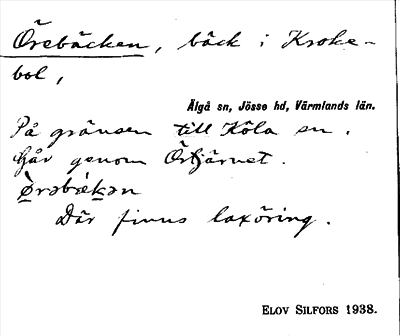 Örebäcken, bäck i Kroke-
bol,
Älgå sn, Jösse hd, Värmlands län.
På gränsen till Köla sn.
Går genom Örtjärnet.
Där finns laxöring.
ELOV SILFORS 1938.